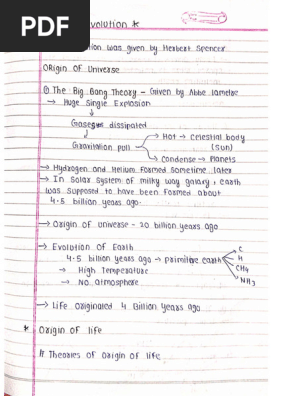 PDF
Evolution *
tion was given by Herbert Spencer
ORigin OF Universe
The Big Bang Theory - Given by Abbe lameitre
→ Huge Single Explosion
Gases dissipated
Gravitation pull → Hot → Celestial body (Sun)
→ Condense → Planets
→ Hydrogen and Helium formed sometime later
→ In Solar System of milky way galaxy, earth
was supposed to have been formed about
4.5 billion years ago.
→ Origin of Universe - 20 billion years ago
→ Evolution Of Earth
4.5 billion years ago → primitive earth
C
H
CH4
NH3
→ High Temperature
→ No atmosphere
→ Life Originated 4 Billion Years ago
* Origin of life
# Theories of origin of life